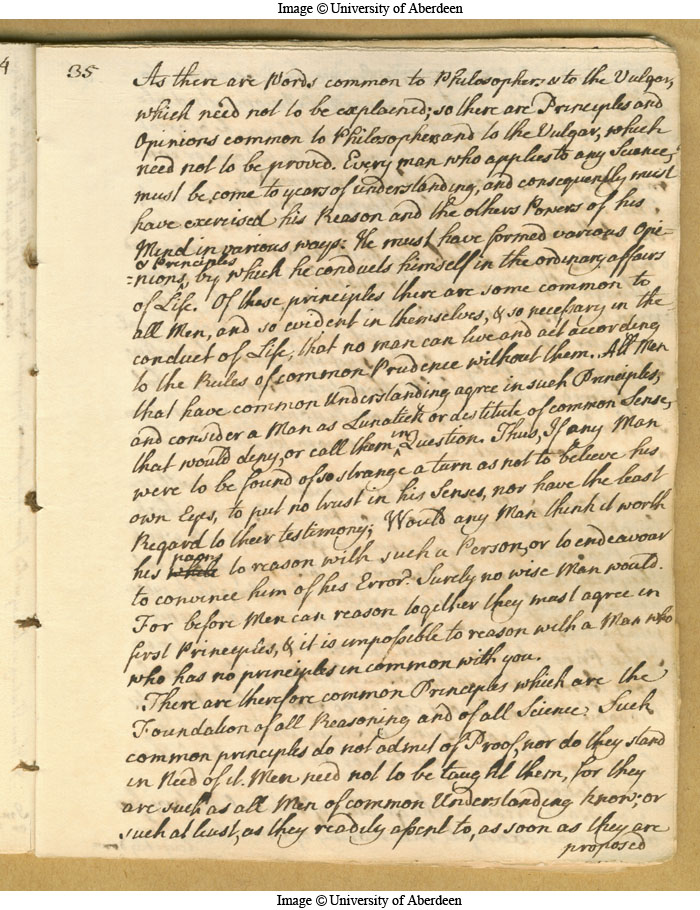 Image © University of Aberdeen
4
35
As there are Words common to Philosophers & to the Vulgar,
which need not to be explained; so there are Principles and
Opinions common to Philosophers and to the Vulgar, which
need not to be proved. Every man who applies to any Science,
must be come to years of understanding, and consequently must
have exercised his Reason and the others Powers of his
Mind in various ways: He must have formed various Opi-
& Principles
-nions, by which he conducts himself in the ordinary affairs
of Life. Of these principles there are some common to
all Men, and so evident in themselves, & so necessary in the
conduct of Life, that no man can live and act according
to the Rules of common Prudence without them. All Men
that have common Understanding agree in such Principles,
and consider a Man as Lunatick or destitute of common Sense,
that would deny, or call them in Question. Thus, If any Man
were to be found of so strange a turn as not to believe his
own Eyes, to put no trust in his Senses, nor have the least
Regard to their testimony; Would any Man think it worth
his while to reason with such a Person, or to endeavour
to convince him of his Error? Surely no wise Man would.
For before Men can reason together they must agree in
first Principles, & it is impossible to reason with a Man who
who has no principles in common with you.
There are therefore common Principles which are the
Foundation of all Reasoning and of all Science. Such
common principles do not admit of Proof, nor do they stand
in Need of it. Men need not to be taught them, for they
are such as all Men of common Understanding know; or
such at least, as they readily assent to, as soon as they are
proposed
Image © University of Aberdeen